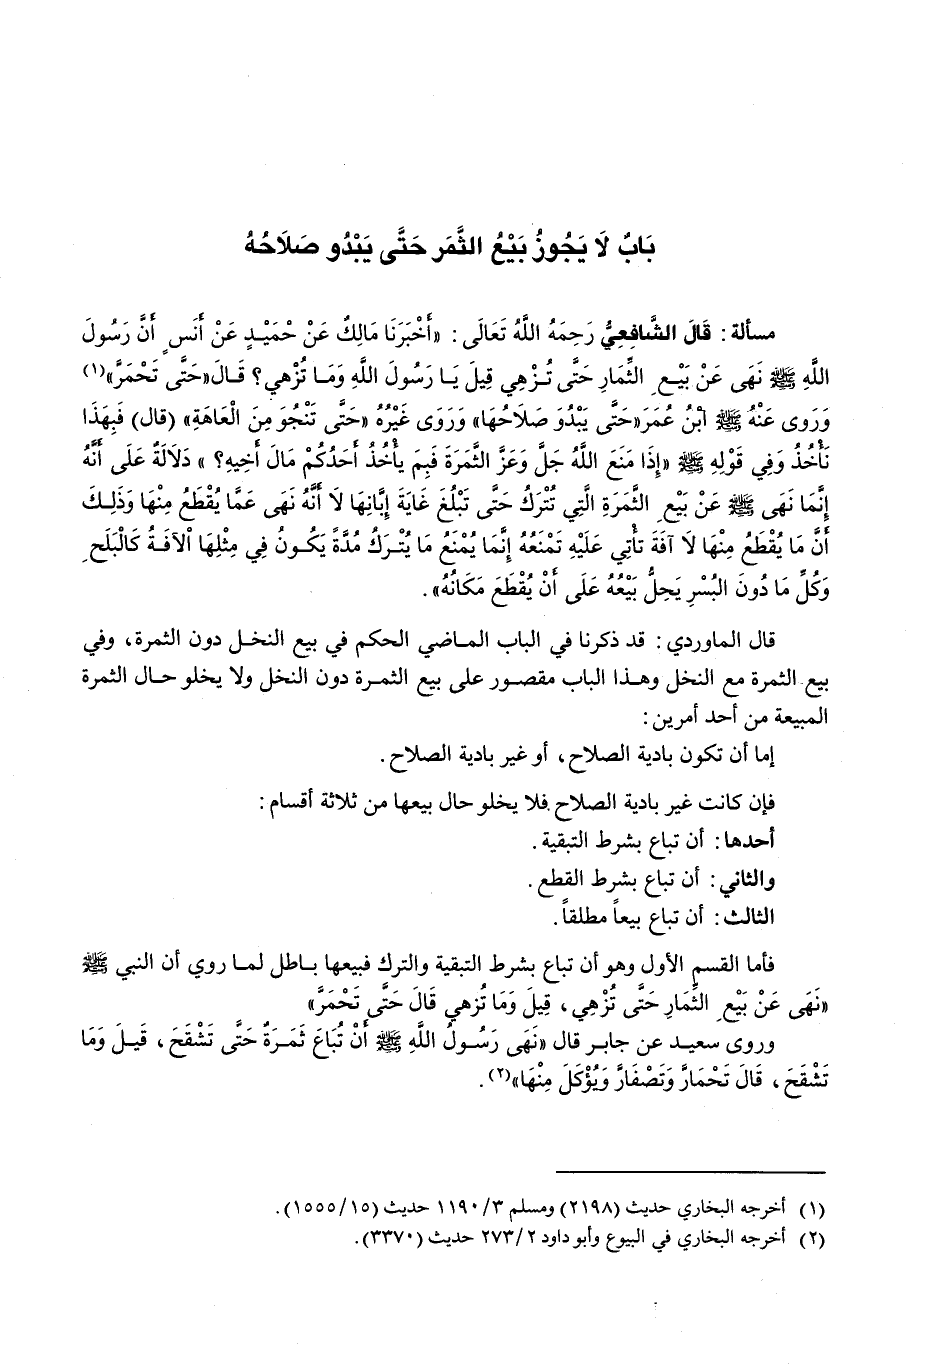 بَابُ لَا يَجُوزُ بَيْعُ الثَّمَرِ حَتَّى يَبْدُو صَلَاحُهُ
مسألة: قَالَ الشَّافِعِيُّ رَحِمَهُ اللَّهُ تَعَالَى: «أَخْبَرَنَا مَالِكٌ عَنْ حُمَيْدٍ عَنْ أَنَسٍ أَنَّ رَسُولَ
اللَّهِ ﷺ نَهَى عَنْ بَيْعِ الثِّمَارِ حَتَّى تُزْهِي قِيلَ يَا رَسُولَ اللَّهِ وَمَا تُزْهِي؟ قَالَ«حَتَّى تَحْمَرَّ»(١)
وَرَوَى عَنْهُ ﷺ ابْنُ عُمَرَ«حَتَّى يَبْدُوَ صَلَاحُهَا» وَرَوَى غَيْرُهُ «حَتَّى تَنْجُوَ مِنَ الْعَاهَةِ» (قال) فَبِهَذَا
نَأْخُذُ وَفِي قَوْلِهِ ﷺ «إِذَا مَنَعَ اللَّهُ جَلَّ وَعَزَّ الثَّمَرَةَ فَبِمَ يَأْخُذُ أَحَدُكُمْ مَالَ أَخِيهِ؟» دَلَالَةٌ عَلَى أَنَّهُ
إِنَّمَا نَهَى ﷺ عَنْ بَيْعِ الثَّمَرَةِ الَّتِي تُتْرَكُ حَتَّى تَبْلُغَ غَايَةَ إِبَّانِهَا لَا أَنَّهُ نَهَى عَمَّا يُقْطَعُ مِنْهَا وَذَلِكَ
أَنَّ مَا يُقْطَعُ مِنْهَا لَا آفَةَ تَأْتِي عَلَيْهِ تَمْنَعُهُ إِنَّمَا يُمْنَعُ مَا يُتْرَكُ مُدَّةً يَكُونُ فِي مِثْلِهَا اَلآفَةُ كَالْبَلَحِ
وَكُلِّ مَا دُونَ البُسْرِ يَحِلُّ بَيْعُهُ عَلَى أَنْ يُقْطَعَ مَكَانَهُ».
قال الماوردي: قد ذكرنا في الباب الماضي الحكم في بيع النخل دون الثمرة، وفي
بيع الثمرة مع النخل وهذا الباب مقصور على بيع الثمرة دون النخل ولا يخلو حال الثمرة
المبيعة من أحد أمرين:
إما أن تكون بادية الصلاح، أو غير بادية الصلاح.
فإن كانت غير بادية الصلاح فلا يخلو حال بيعها من ثلاثة أقسام:
أحدها: أن تباع بشرط التبقية.
والثاني: أن تباع بشرط القطع.
الثالث: أن تباع بيعاً مطلقاً.
فأما القسم الأول وهو أن تباع بشرط التبقية والترك فبيعها باطل لما روي أن النبي ﷺ
«نَهَى عَنْ بَيْعِ الثِّمَارِ حَتَّى تُزْهِي، قِيلَ وَمَا تُزهي قَالَ حَتَّى تَحْمَرَّ»
وروى سعيد عن جابر قال «نَهَى رَسُولُ اللَّهِ ﷺ أَنْ تُبَاعَ ثَمَرَةٌ حَتَّى تَشْقَحَ، قِيلَ وَمَا
تَشْقَحَ، قَالَ تَحْمَارَّ وَتَصْفَارَّ وَيُؤْكَلَ مِنْهَا»(٢).
(١) أخرجه البخاري حديث (٢١٩٨) ومسلم ٣/ ١١٩٠ حديث (١٥/ ١٥٥٥).
(٢) أخرجه البخاري في البيوع وأبو داود ٢/ ٢٧٣ حديث (٣٣٧٠).